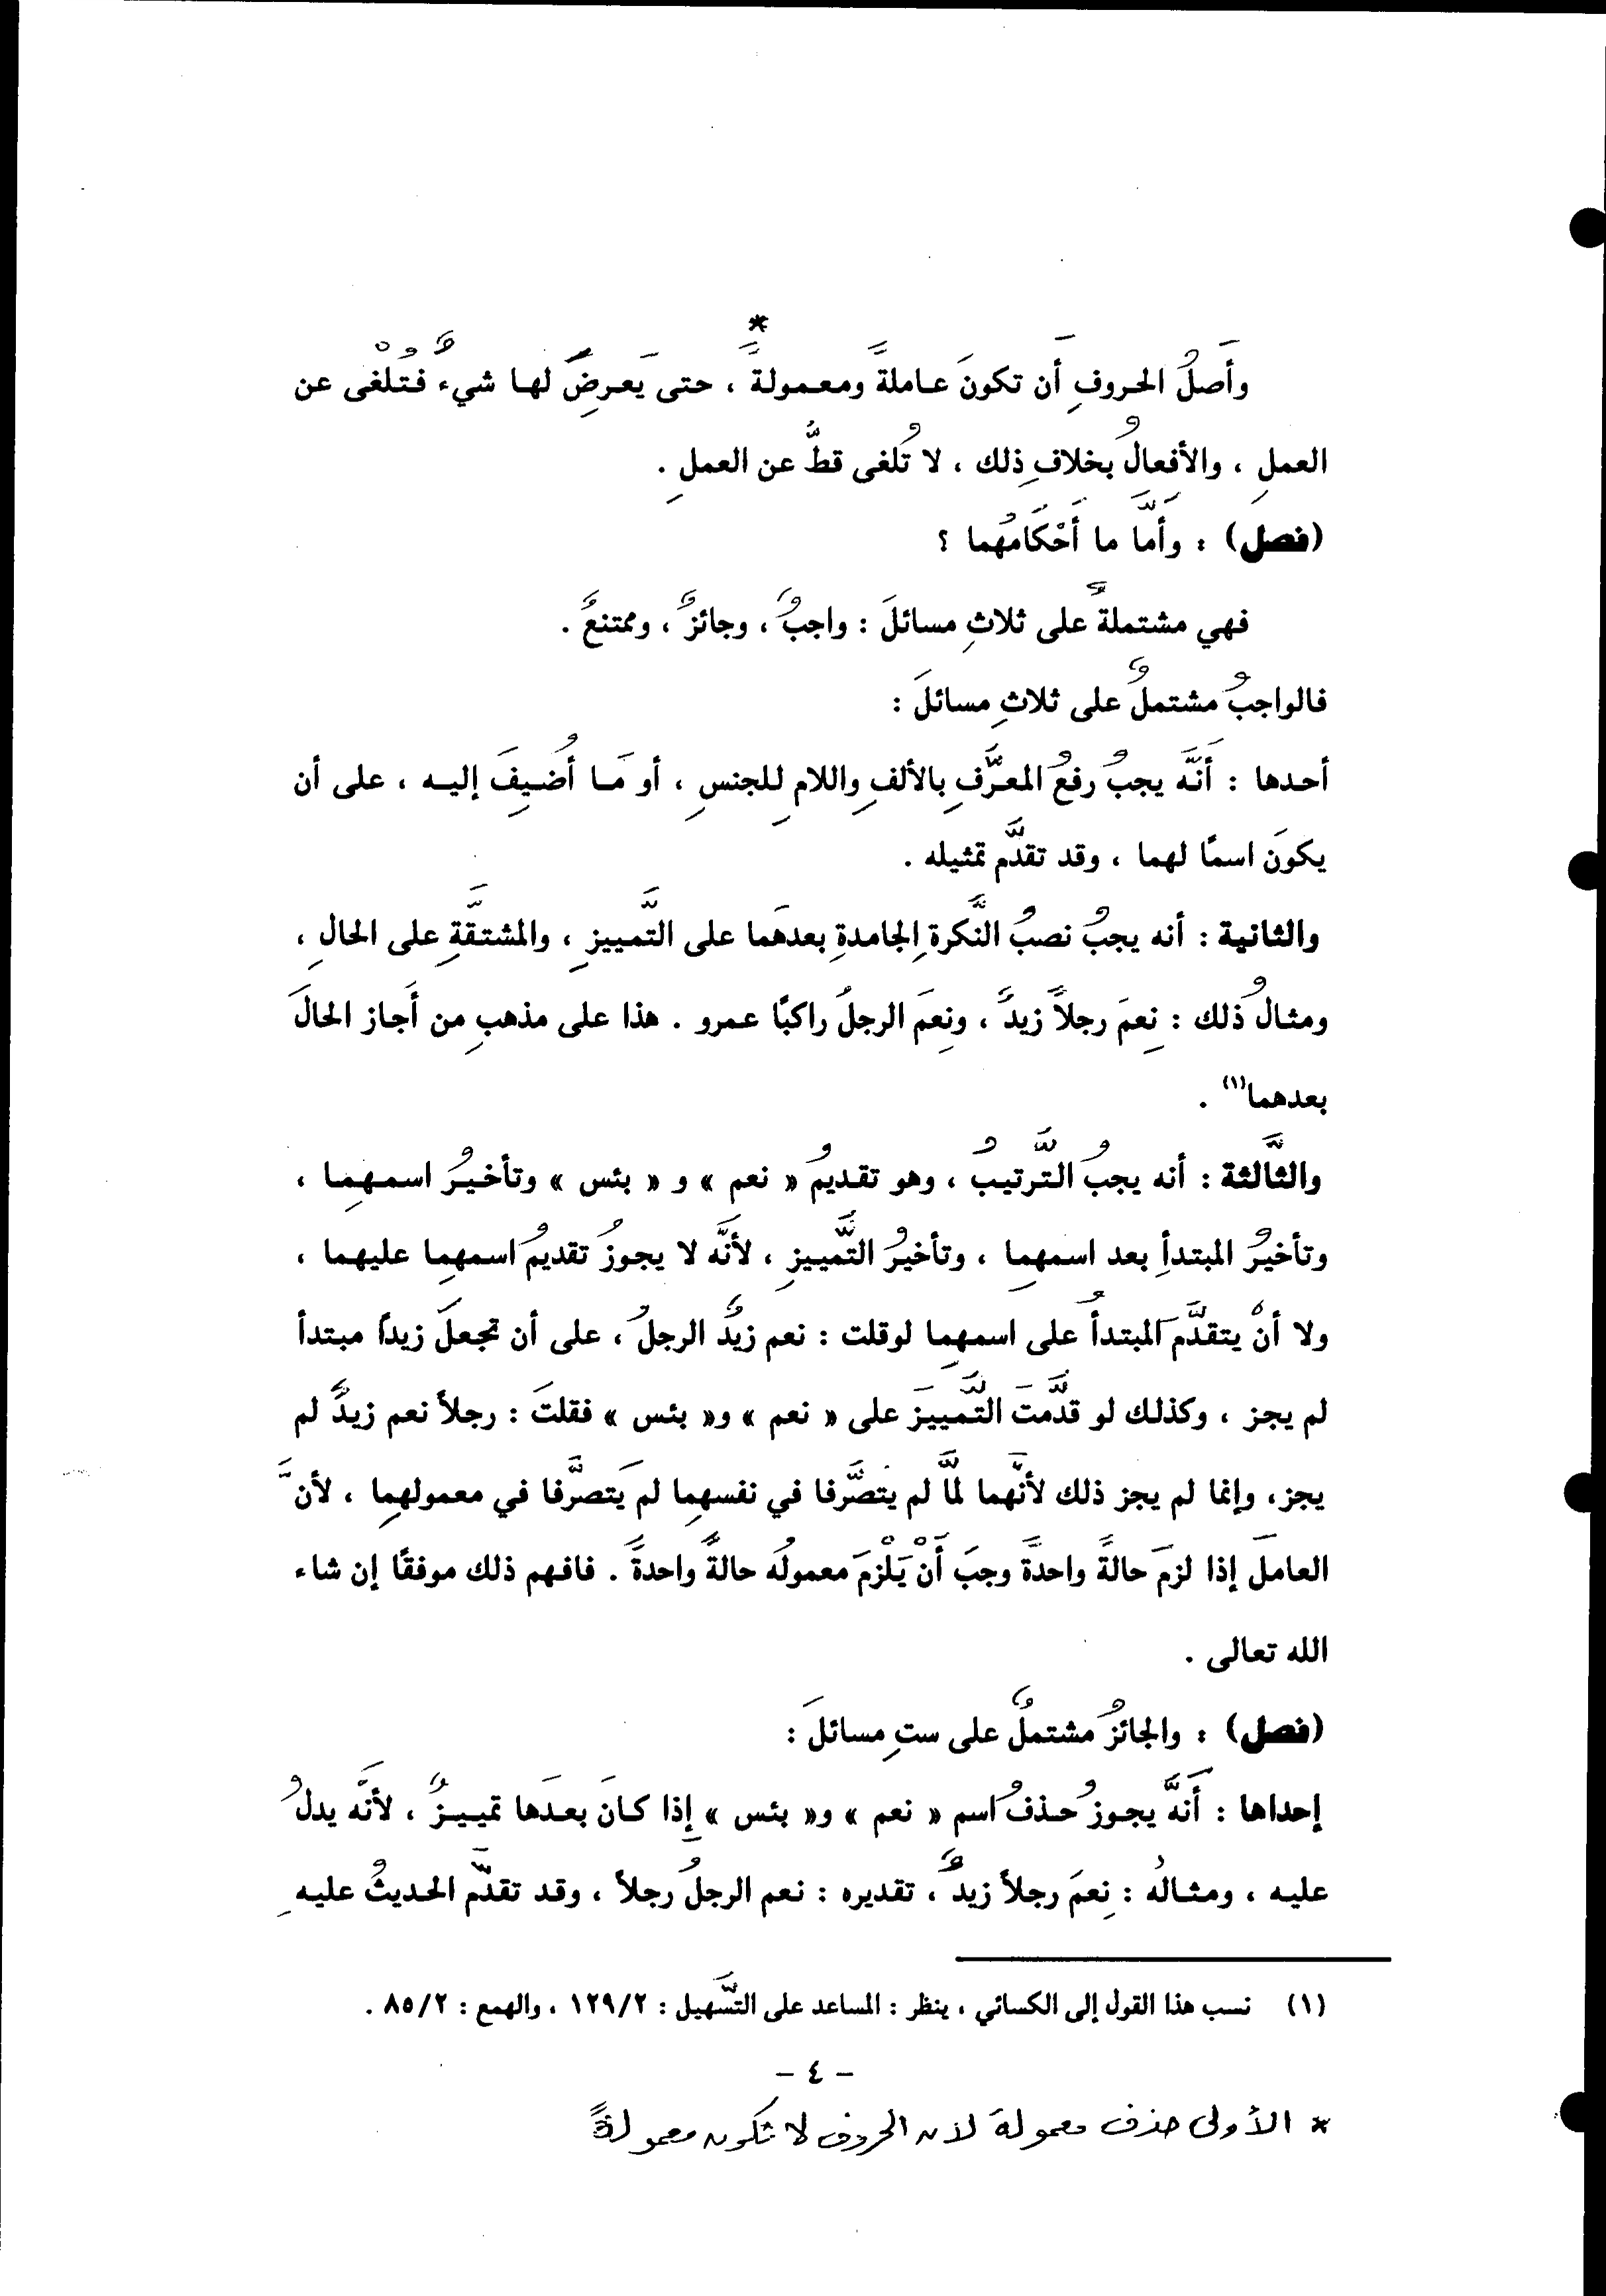 وأَصلُ الحروفِ أَن تكونَ عاملةً ومعمولةً* ، حتى يَعرضَ لها شيءٌ فتُلْغى عن
العملِ ، والأفعالُ بخلافِ ذلك ، لا تُلغى قطُّ عن العملِ .
(فصل) : وأَمَّا ما أَحْكَامُهُما ؟
فهي مشتملةٌ على ثلاثِ مسائلَ : واجبٌ ، وجائزٌ ، وممتنعٌ .
فالواجبُ مشتملٌ على ثلاثِ مسائلَ :
أحدها : أَنَّه يجبُ رفعُ المعرَّفِ بالألفِ واللامِ للجنسِ ، أو مَا أُضيفَ إليه ، على أن
يكونَ اسمًا لهما ، وقد تقدَّم تمثيله .
والثانية : أنه يجبُ نصبُ النَّكرةِ الجامدةِ بعدهَما على التَّمييزِ ، والمشتقَّةِ على الحالِ ،
ومثالُ ذلك : نِعمَ رجلاً زيدٌ ، ونِعمَ الرجلُ راكبًا عمرو . هذا على مذهبِ من أَجاز الحالَ
بعدهما(١) .
والثَّالثة : أنه يجبُ التَّرتيبُ ، وهو تقديمُ « نعم » و « بئس » وتأخيرُ اسمهِما ،
وتأخيرُ المبتدأِ بعد اسمهِما ، وتأخيرُ التَّمييزِ ، لأنَّه لا يجوزُ تقديمُ اسمهِما عليهما ،
ولا أنْ يتقدَّم المبتدأُ على اسمهِما لوقلت : نعم زيدٌ الرجلُ ، على أن تجعلَ زيداً مبتدأ
لم يجز ، وكذلك لو قدَّمتَ التَّمييزَ على « نعم » و« بئس » فقلتَ : رجلاً نعم زيدٌ لم
يجز، وإنما لم يجز ذلك لأنَّهما لمَّا لم يتصَّرفا في نفسهِما لم يَتصرَّفا في معمولهِما ، لأنَّ
العاملَ إذا لزمَ حالةً واحدةً وجبَ أَنْ يَلْزمَ معمولُه حالةً واحدةً . فافهم ذلك موفقًا إن شاء
الله تعالى .
(فصل) : والجائزُ مشتملٌ على ستِ مسائلَ :
إحداها : أَنَّه يجوزُ حذفُ اسم « نعم » و« بئس » إِذا كانَ بعدَها تمييزٌ ، لأنَّه يدلُ
عليه ، ومثالُه : نِعمَ رجلاً زيدٌ ، تقديره : نعم الرجلُ رجلاً ، وقد تقدَّم الحديثُ عليهِ
(١) نسب هذا القول إلى الكسائي ، ينظر : المساعد على التَّسهيل : ١٢٩/٢ ، والهمع : ٨٥/٢ .
– ٤ –
* الأولى حذف معمولةً لأن الحروف لا تكون معمولةً